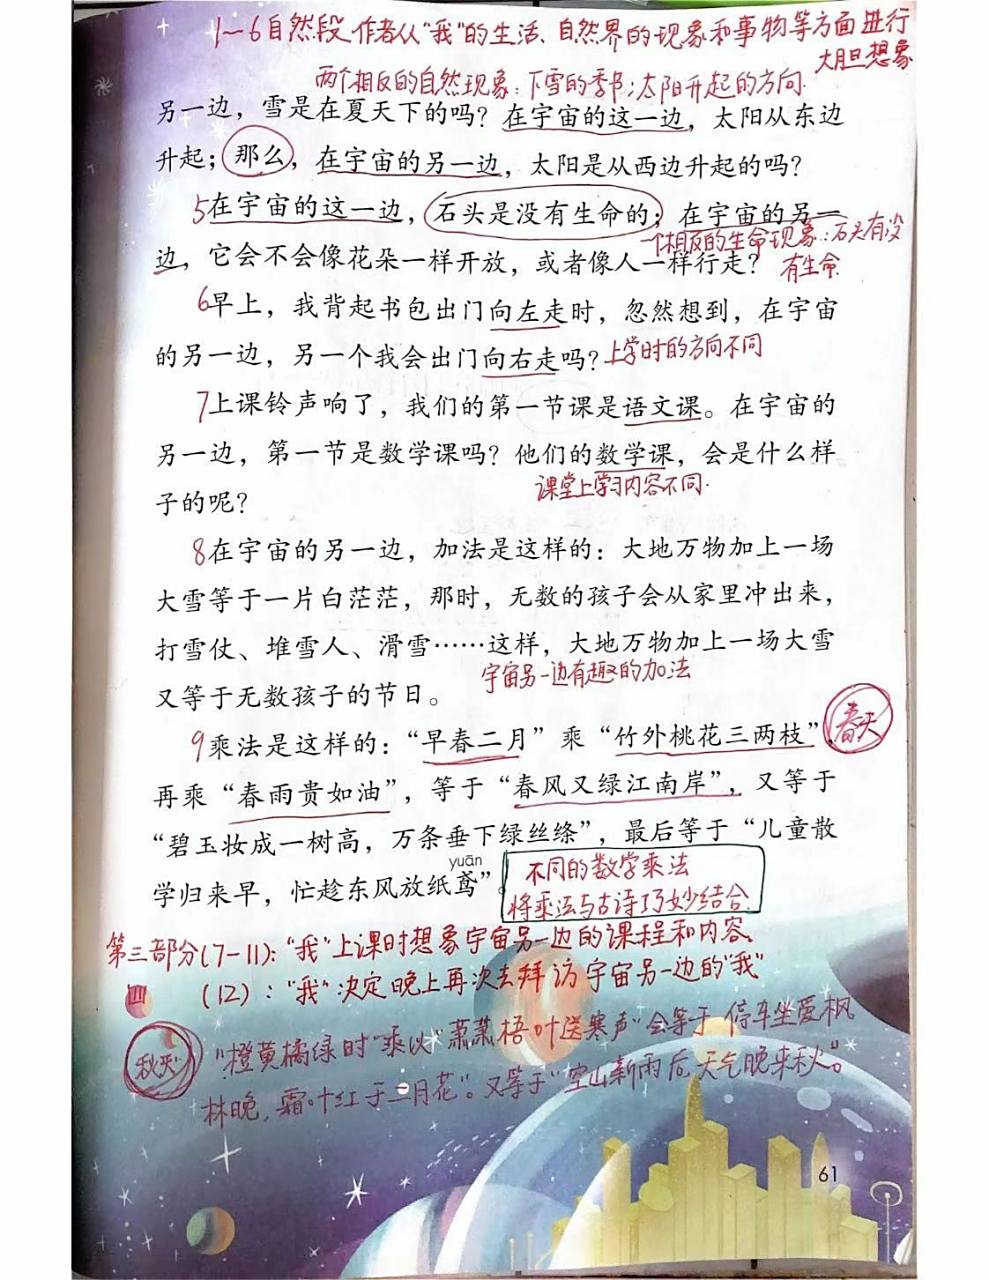 1—6自然段作者从“我”的生活、自然界的现象和事物等方面进行
大胆想象
两个相反的自然现象:下雪的季节;太阳升起的方向.
另一边，雪是在夏天下的吗？在宇宙的这一边，太阳从东边
升起；那么，在宇宙的另一边，太阳是从西边升起的吗？
5在宇宙的这一边，石头是没有生命的；在宇宙的另一
一个相反的生命现象:石头有没
边，它会不会像花朵一样开放，或者像人一样行走？
有生命.
6早上，我背起书包出门向左走时，忽然想到，在宇宙
的另一边，另一个我会出门向右走吗？上学时的方向不同
7上课铃声响了，我们的第一节课是语文课。在宇宙的
另一边，第一节是数学课吗？他们的数学课，会是什么样
课堂上学习内容不同.
子的呢？
8在宇宙的另一边，加法是这样的：大地万物加上一场
大雪等于一片白茫茫，那时，无数的孩子会从家里冲出来，
打雪仗、堆雪人、滑雪……这样，大地万物加上一场大雪
宇宙另一边有趣的加法
又等于无数孩子的节日。
春天
9乘法是这样的：“早春二月”乘“竹外桃花三两枝”，
再乘“春雨贵如油”，等于“春风又绿江南岸”，又等于
“碧玉妆成一树高，万条垂下绿丝绦”，最后等于“儿童散
yuān
学归来早，忙趁东风放纸鸢”。
不同的数学乘法
将乘法与古诗巧妙结合.
第三部分(7—11):“我”上课时想象宇宙另一边的课程和内容.
四 (12):“我”决定晚上再次去拜访宇宙另一边的“我”
秋天
“橙黄橘绿时”乘以“萧萧梧叶送寒声”会等于“停车坐爱枫
林晚,霜叶红于二月花”。又等于“空山新雨后,天气晚来秋”。
61